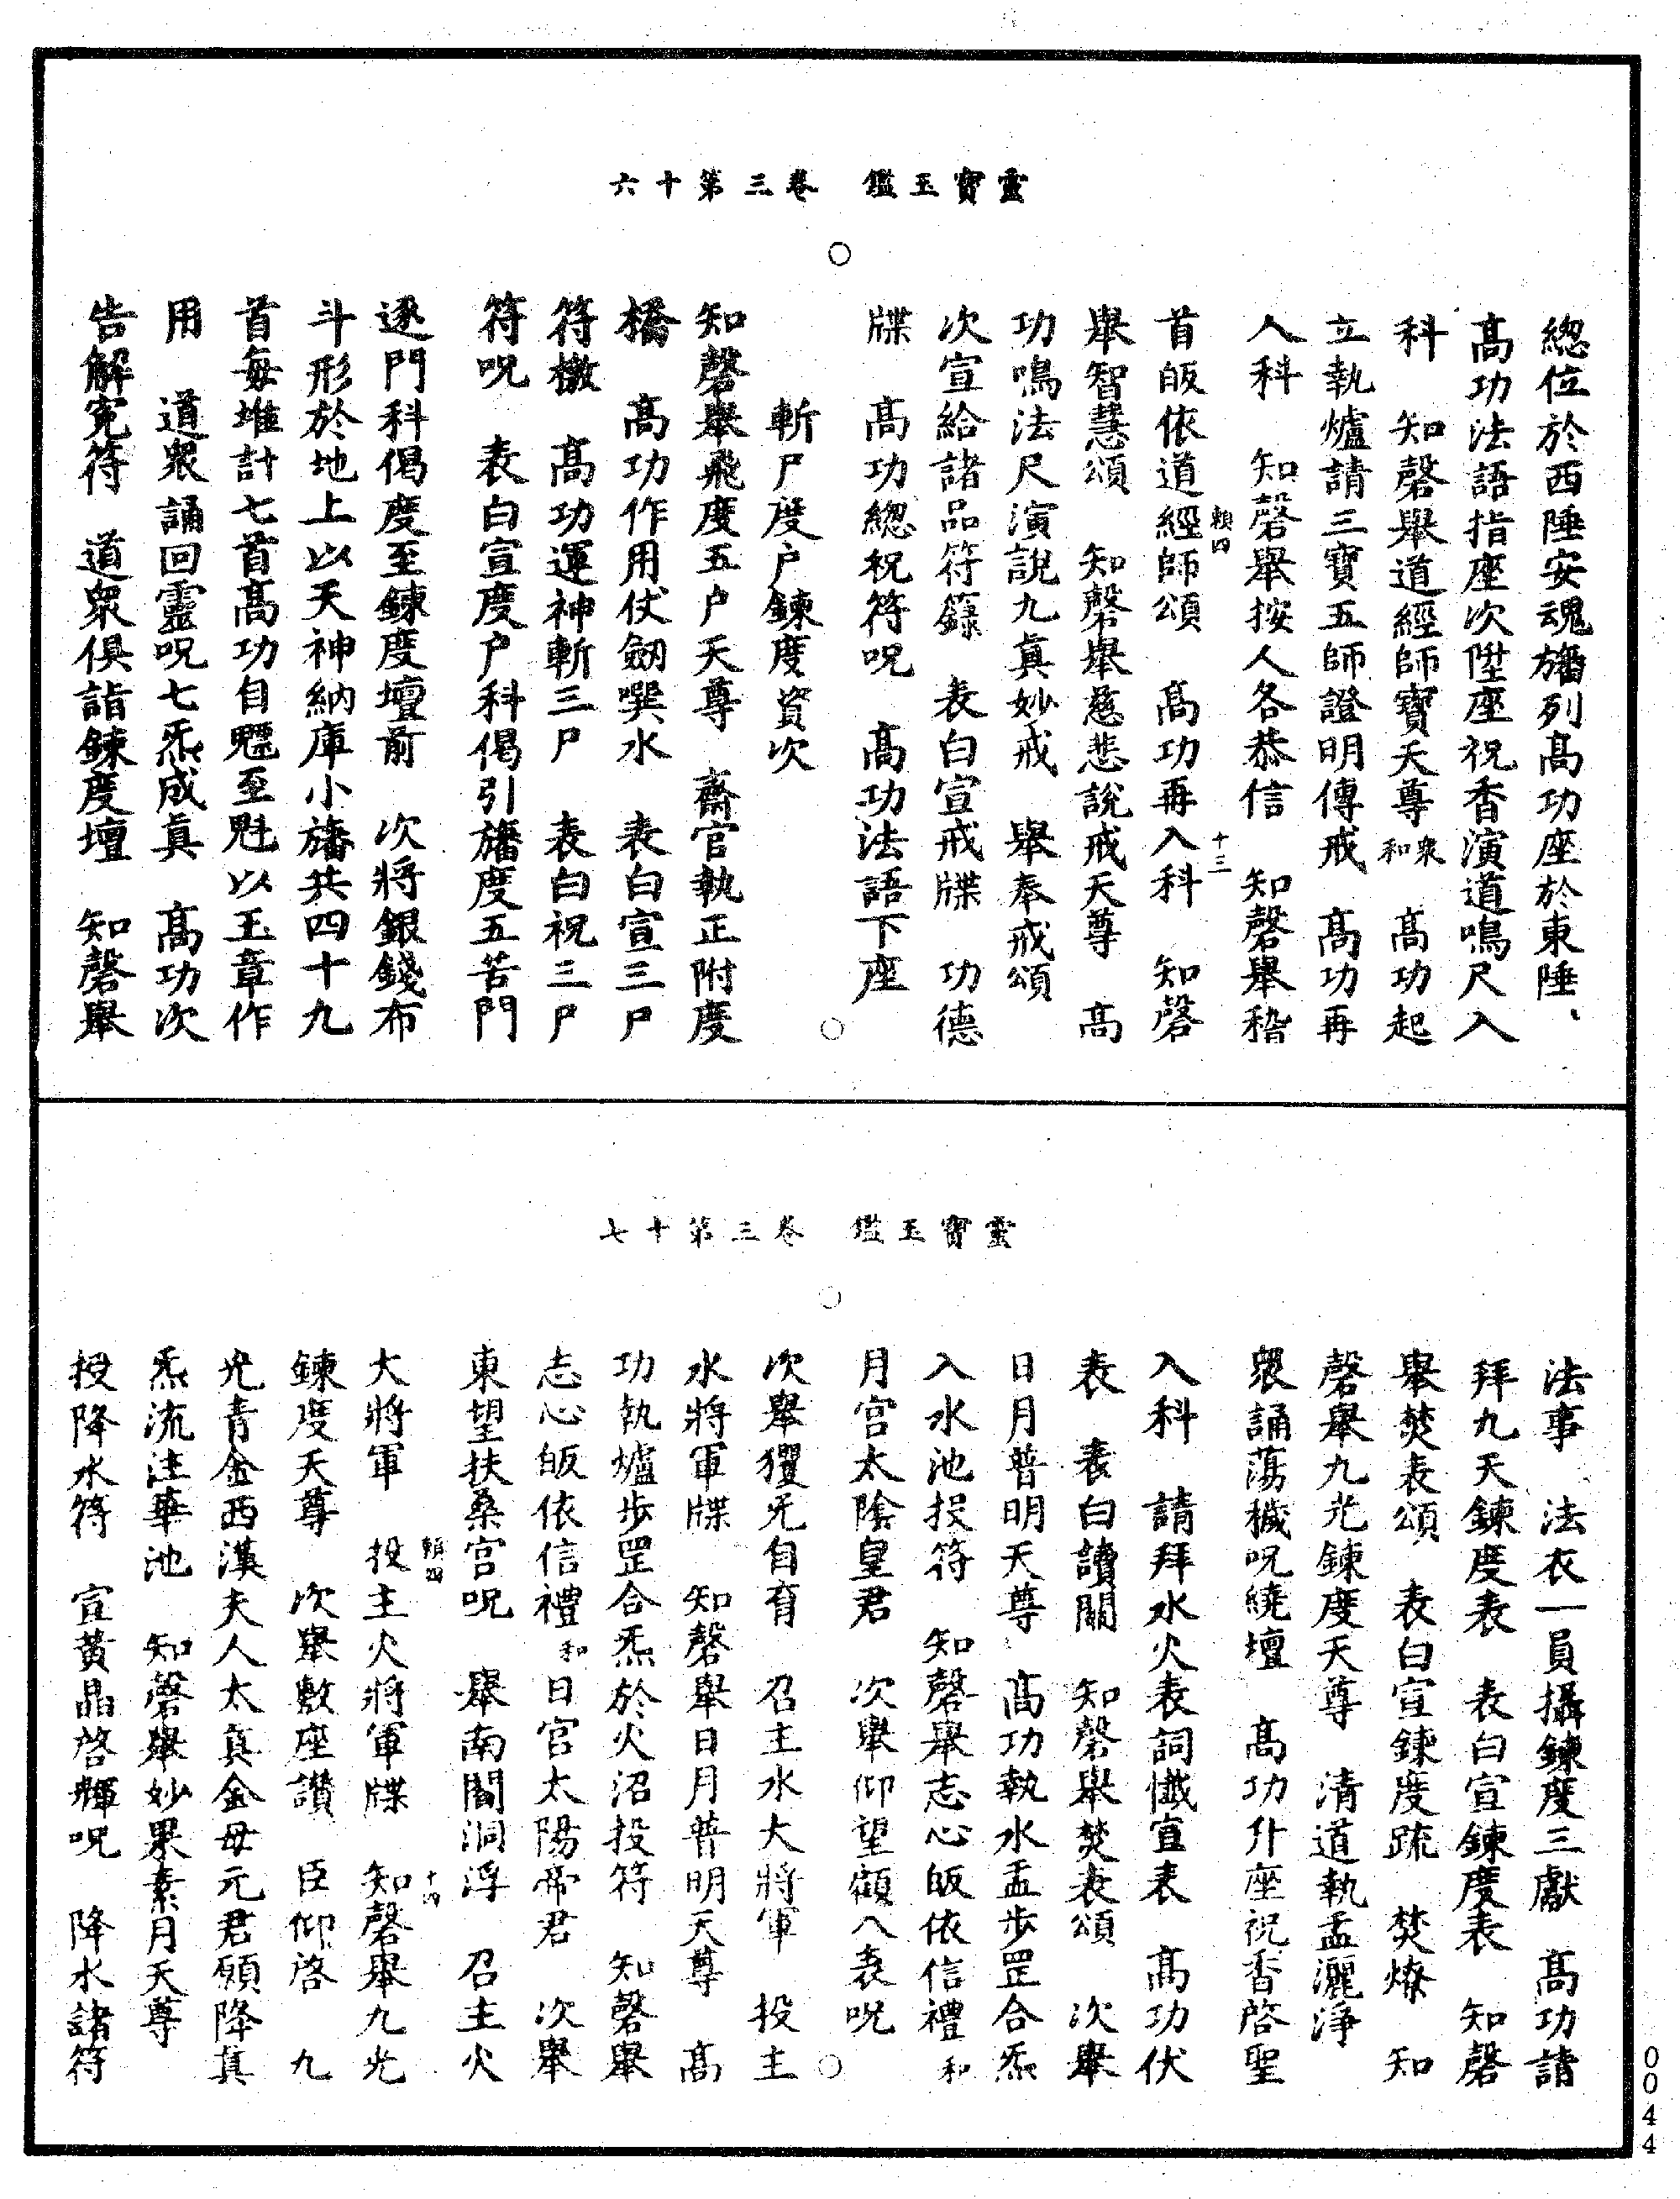 靈寶玉鑑　卷三第十六
總位於西陲安魂旛列高功座於東陲、
高功法語指座次陞座祝香演道鳴尺入
科　知磬舉道經師寶天尊衆和　高功起
立執爐請三寶五師證明傳戒　高功再
人科　知磬舉按人各恭信　知磬舉稽
首皈依道經師頌　高功再入科　知磬
舉智慧頌　知磬舉慈悲說戒天尊　高
功鳴法尺演說九真妙戒　舉奉戒頌
次宣給諸品符籙　表白宣戒牒　功德
牒　高功總祝符呪　高功法語下座
斬尸度户鍊度資次
知磬舉飛度五户天尊　齋官執正附度
橋　高功作用伏劒噀水　表白宣三尸
符檄　高功運神斬三尸　表白祝三尸
符呪　表白宣度户科偈引旛度五苦門
逐門科偈度至鍊度壇前　次將銀錢布
斗形於地上以天神納庫小旛共四十九
首每堆計七首高功自魒至魁以玉章作
用　道衆誦回靈呪七炁成真　高功次
告解寃符　道衆俱詣鍊度壇　知磬舉
賴四　十三
靈寶玉鑑　卷三第十七
法事　法衣一員攝鍊度三獻　高功請
拜九天鍊度表　表白宣鍊度表　知磬
舉焚表頌　表白宣鍊度疏　焚燎　知
磬舉九光鍊度天尊　清道執盂灑淨
衆誦蕩穢呪繞壇　高功升座祝香啓聖
入科　請拜水火表詞懺宣表　高功伏
表　表白讀關　知磬舉焚表頌　次舉
日月普明天尊　高功執水盂步罡合炁
入水池投符　知磬舉志心皈依信禮和
月宮太陰皇君　次舉仰望顧入表呪
次舉玃无自育　召主水大將軍　投主
水將軍牒　知磬舉日月普明天尊　高
功執爐步罡合炁於火沼投符　知磬舉
志心皈依信禮和日宮太陽帝君　次舉
東望扶桑宮呪　舉南閻洞浮　召主火
大將軍　投主火將軍牒　知磬舉九光
鍊度天尊　次舉敷座讚　臣仰啓　九
光青金西漢夫人太真金母元君願降真
炁流注華池　知磬舉妙果素月天尊
投降水符　宣黃晶啓輝呪　降水諸符
賴四　十四
0044